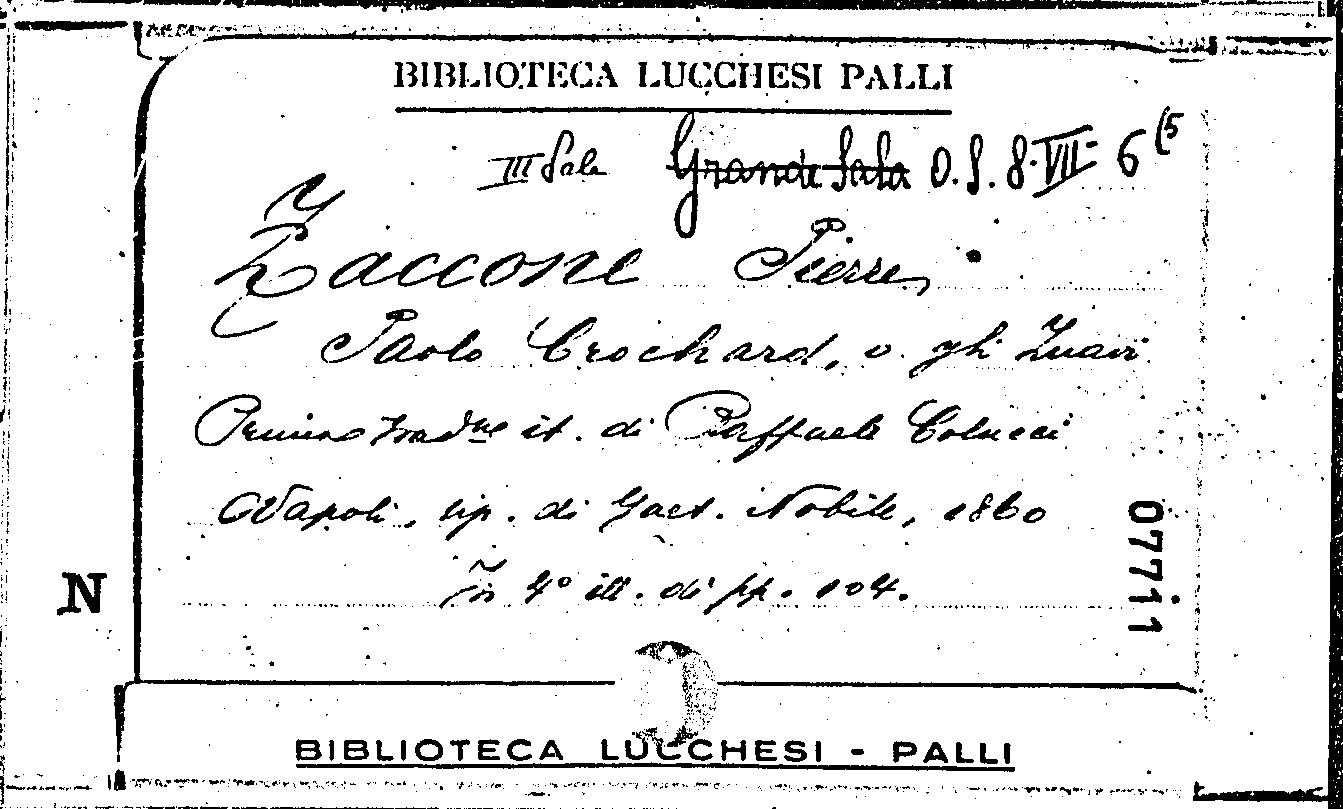 BIBLIOTECA LUCCHESI PALLI
III Sala Grande Sala O. S. 8. VII- 6 (5
Zaccone Pierre,
Paolo Crochard, o. gli Zuavi
Prima trad.ne it. di Raffaele Colucci
Napoli, tip. di Gaet. Nobile, 1860
In 4° ill. di pp. 104.
N
07711
BIBLIOTECA LUCCHESI - PALLI